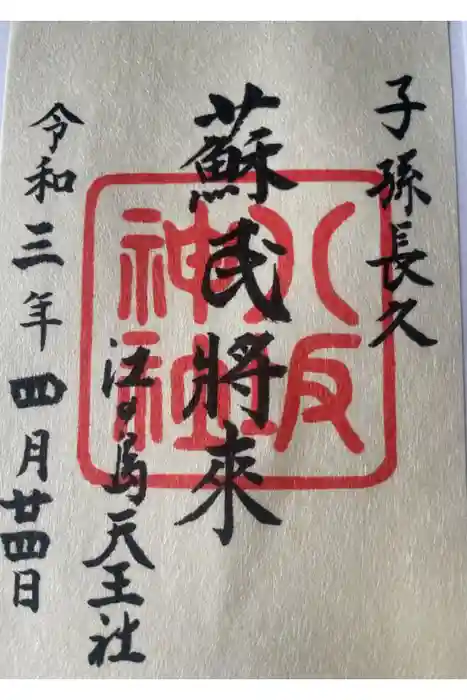 子孫長久
蘇民將來
江ノ島天王社
令和三年四月廿四日
八坂神社